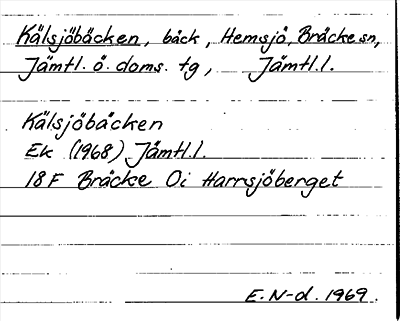 Kälsjöbäcken, bäck, Hemsjö, Bräcke sn,
Jämtl. ö. doms. tg, Jämtl.l.
Kälsjöbäcken
Ek (1968) Jämtl.l.
18F Bräcke 0i Harrsjöberget
E.N-d. 1969.